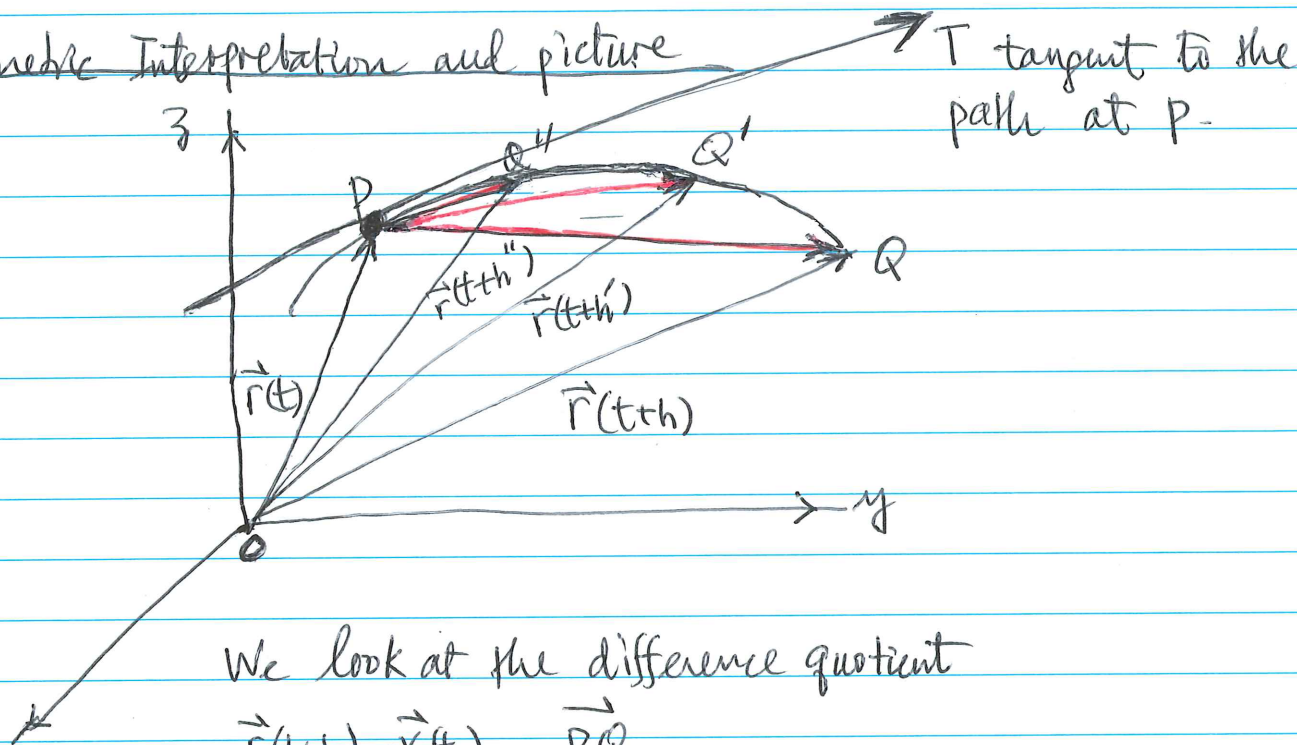 netric Interpretation and picture
T tangent to the
path at P.
z
P
Q''
Q'
Q
r⃗(t+h'')
r⃗(t+h')
r⃗(t)
r⃗(t+h)
y
O
We look at the difference quotient
r⃗(t+h) r⃗(t) PQ⃗